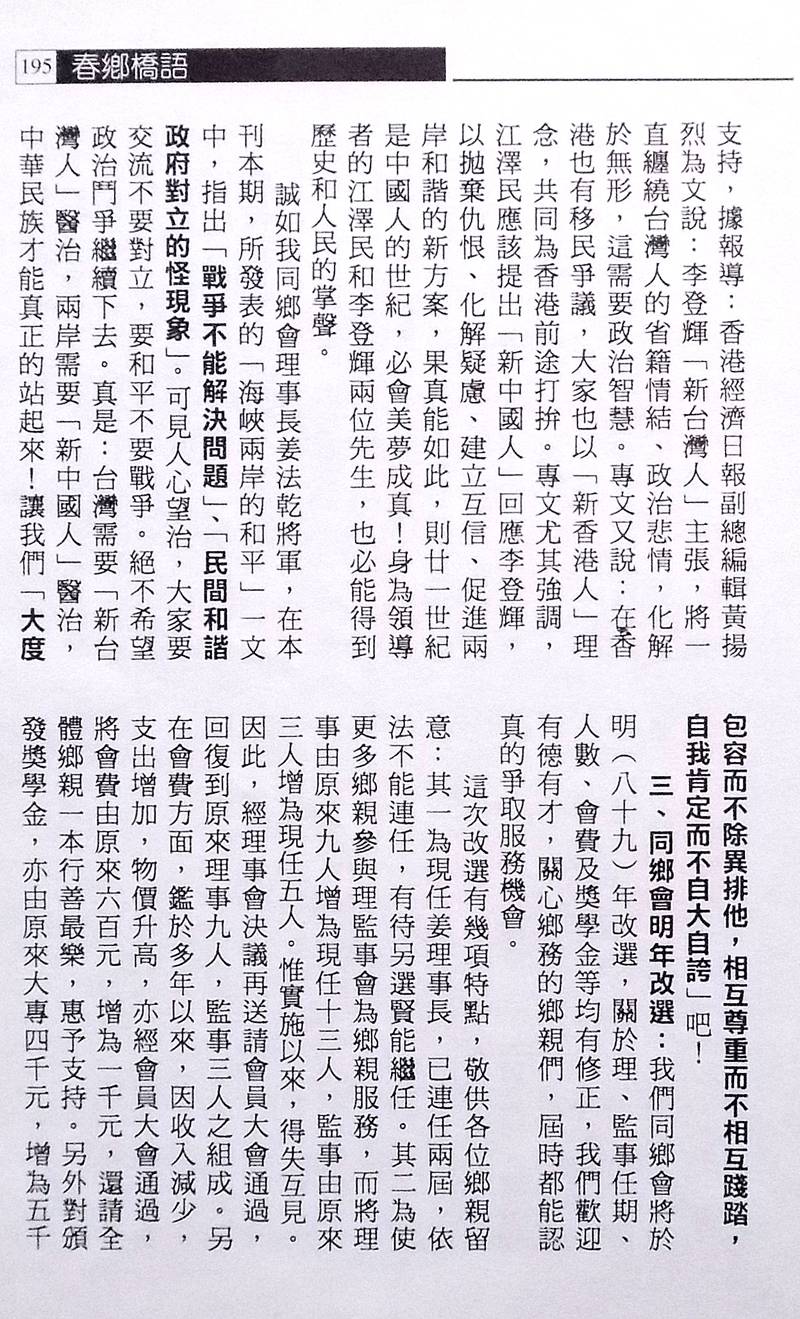 195 春鄉橋語
支持，據報導：香港經濟日報副總編輯黃揚
烈為文說：李登輝「新台灣人」主張，將一
直纏繞台灣人的省籍情結、政治悲情，化解
於無形，這需要政治智慧。專文又說：在香
港也有移民爭議，大家也以「新香港人」理
念，共同為香港前途打拚。專文尤其強調，
江澤民應該提出「新中國人」回應李登輝，
以拋棄仇恨、化解疑慮、建立互信、促進兩
岸和諧的新方案，果真能如此，則廿一世紀
是中國人的世紀，必會美夢成真！身為領導
者的江澤民和李登輝兩位先生，也必能得到
歷史和人民的掌聲。
誠如我同鄉會理事長姜法乾將軍，在本
刊本期，所發表的「海峽兩岸的和平」一文
中，指出「戰爭不能解決問題」、「民間和諧
政府對立的怪現象」。可見人心望治，大家要
交流不要對立，要和平不要戰爭。絕不希望
政治鬥爭繼續下去。真是：台灣需要「新台
灣人」醫治，兩岸需要「新中國人」醫治，
中華民族才能真正的站起來！讓我們「大度
包容而不除異排他，相互尊重而不相互踐踏，
自我肯定而不自大自誇」吧！
三、同鄉會明年改選：我們同鄉會將於
明（八十九）年改選，關於理、監事任期、
人數、會費及獎學金等均有修正，我們歡迎
有德有才，關心鄉務的鄉親們，屆時都能認
真的爭取服務機會。
這次改選有幾項特點，敬供各位鄉親留
意：其一為現任姜理事長，已連任兩屆，依
法不能連任，有待另選賢能繼任。其二為使
更多鄉親參與理監事會為鄉親服務，而將理
事由原來九人增為現任十三人，監事由原來
三人增為現任五人。惟實施以來，得失互見。
因此，經理事會決議再送請會員大會通過，
回復到原來理事九人，監事三人之組成。另
在會費方面，鑑於多年以來，因收入減少，
支出增加，物價升高，亦經會員大會通過，
將會費由原來六百元，增為一千元，還請全
體鄉親一本行善最樂，惠予支持。另外對頒
發獎學金，亦由原來大專四千元，增為五千